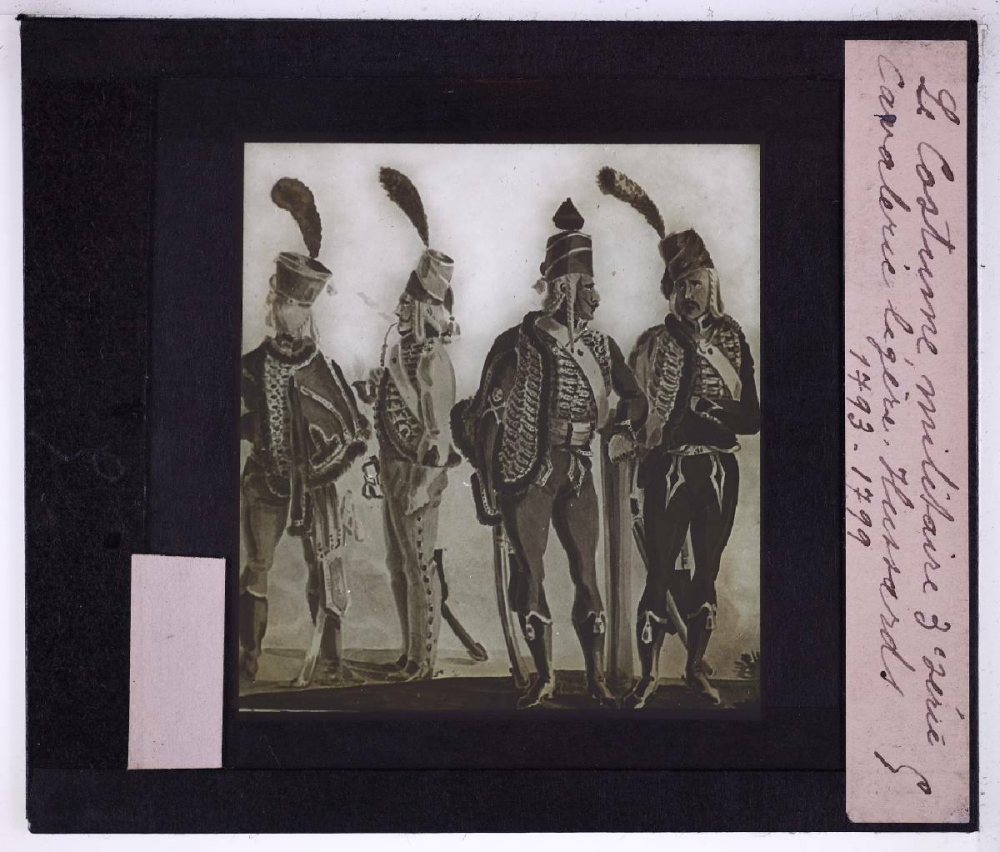 Le Costume militaire 3e série
Cavalerie légère. Hussards
1793-1799